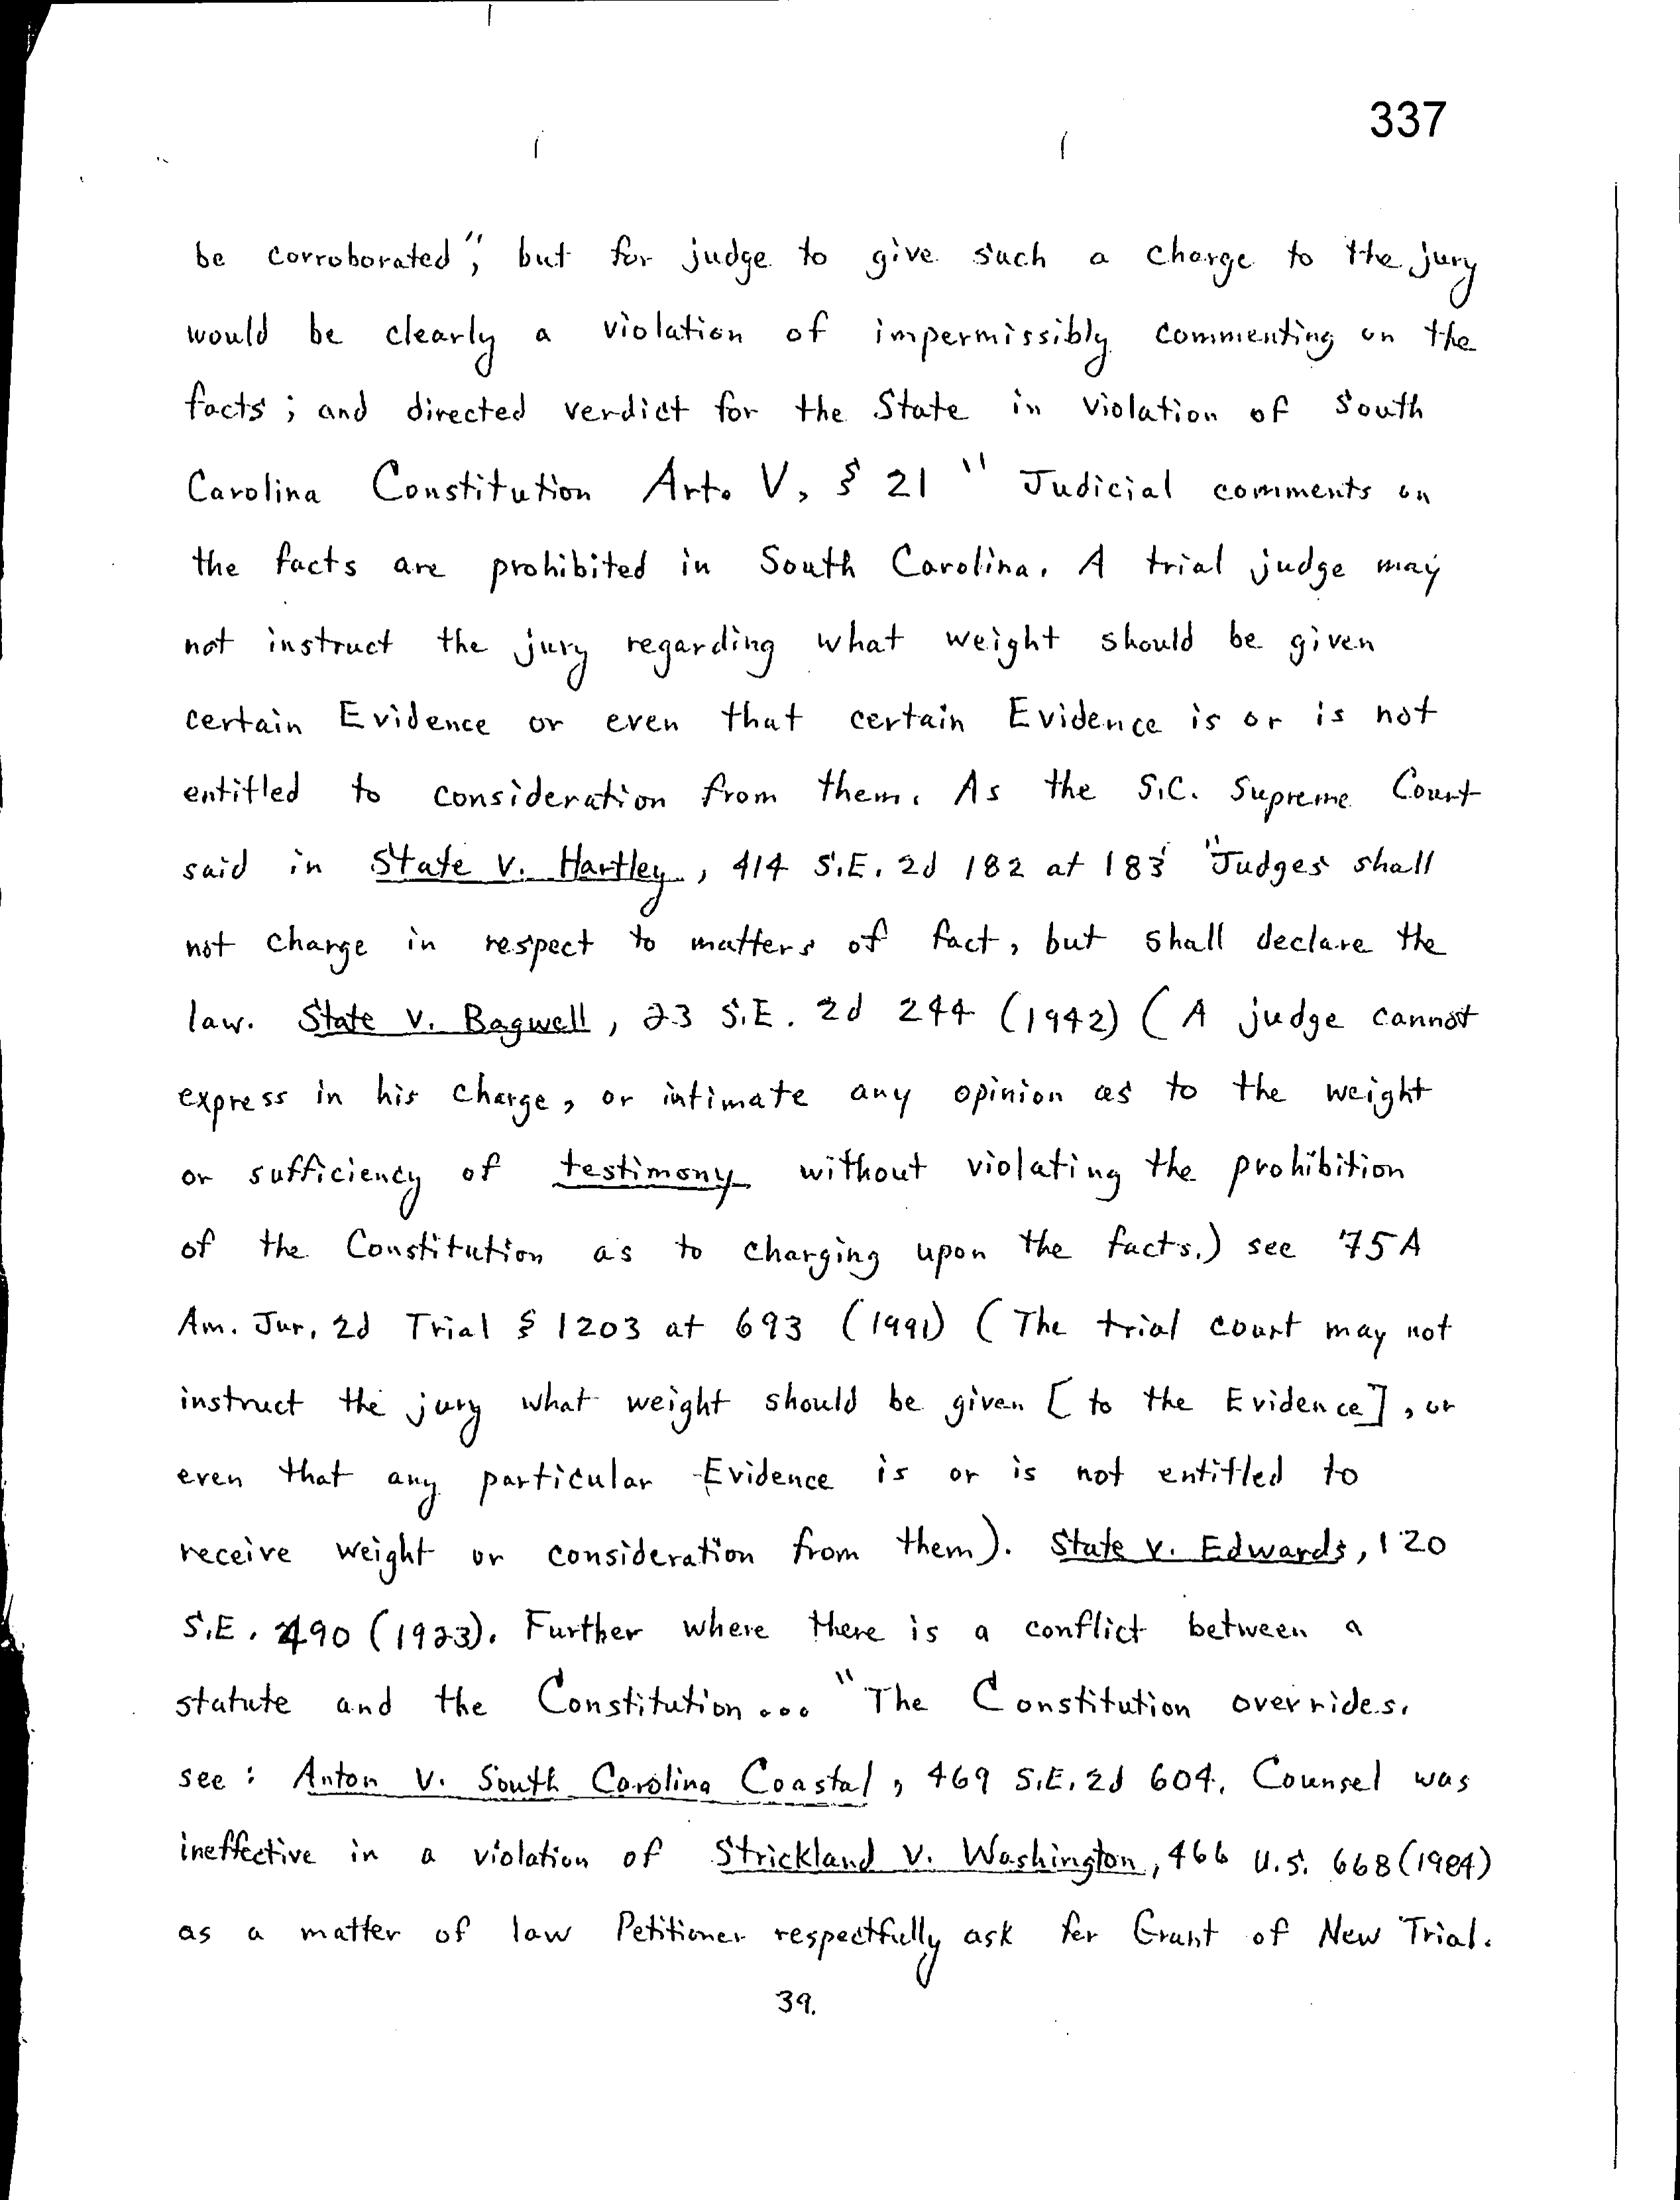 337
be corroborated"; but for judge to give such a charge to the jury
would be clearly a violation of impermissibly commenting on the
facts; and directed verdict for the State in violation of South
Carolina Constitution Art. V, § 21 " Judicial comments on
the facts are prohibited in South Carolina. A trial judge may
not instruct the jury regarding what weight should be given
certain Evidence or even that certain Evidence is or is not
entitled to consideration from them. As the S.C. Supreme Court
said in State v. Hartley, 414 S.E. 2d 182 at 183 "Judges shall
not charge in respect to matters of fact, but shall declare the
law. State v. Bagwell, 23 S.E. 2d 244 (1942) (A judge cannot
express in his charge, or intimate any opinion as to the weight
or sufficiency of testimony without violating the prohibition
of the Constitution as to charging upon the facts.) see 75A
Am. Jur. 2d Trial § 1203 at 693 (1991) (The trial court may not
instruct the jury what weight should be given [to the Evidence], or
even that any particular Evidence is or is not entitled to
receive weight or consideration from them). State v. Edwards, 120
S.E. 490 (1923). Further where there is a conflict between a
statute and the Constitution... "The Constitution overrides.
see: Anton v. South Carolina Coastal, 469 S.E. 2d 604. Counsel was
ineffective in a violation of Strickland v. Washington, 466 U.S. 668 (1984)
as a matter of law Petitioner respectfully ask for Grant of New Trial.
39.